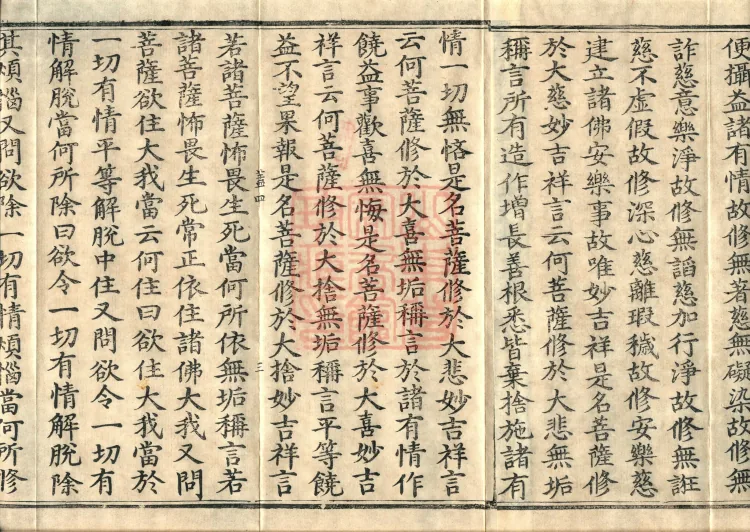 便攝益諸有情故修無著慈無礙染故修無
詐慈意樂淨故修無諂慈加行淨故修無誑
慈不虛假故修深心慈離瑕穢故修安樂慈
建立諸佛安樂事故唯妙吉祥是名菩薩修
於大慈妙吉祥言云何菩薩修於大悲無垢
稱言所有造作增長善根悉皆棄捨施諸有
情一切無悋是名菩薩修於大悲妙吉祥言
云何菩薩修於大喜無垢稱言於諸有情作
饒益事歡喜無悔是名菩薩修於大喜妙吉
祥言云何菩薩修於大捨無垢稱言平等饒
益不望果報是名菩薩修於大捨妙吉祥言
蓋四 三
若諸菩薩怖畏生死當何所依無垢稱言若
諸菩薩怖畏生死常正依住諸佛大我又問
菩薩欲住大我當云何住曰欲住大我當於
一切有情平等解脫中住又問欲令一切有
情解脫當何所除曰欲令一切有情解脫除
其煩惱又問欲除一切有情煩惱當何所修